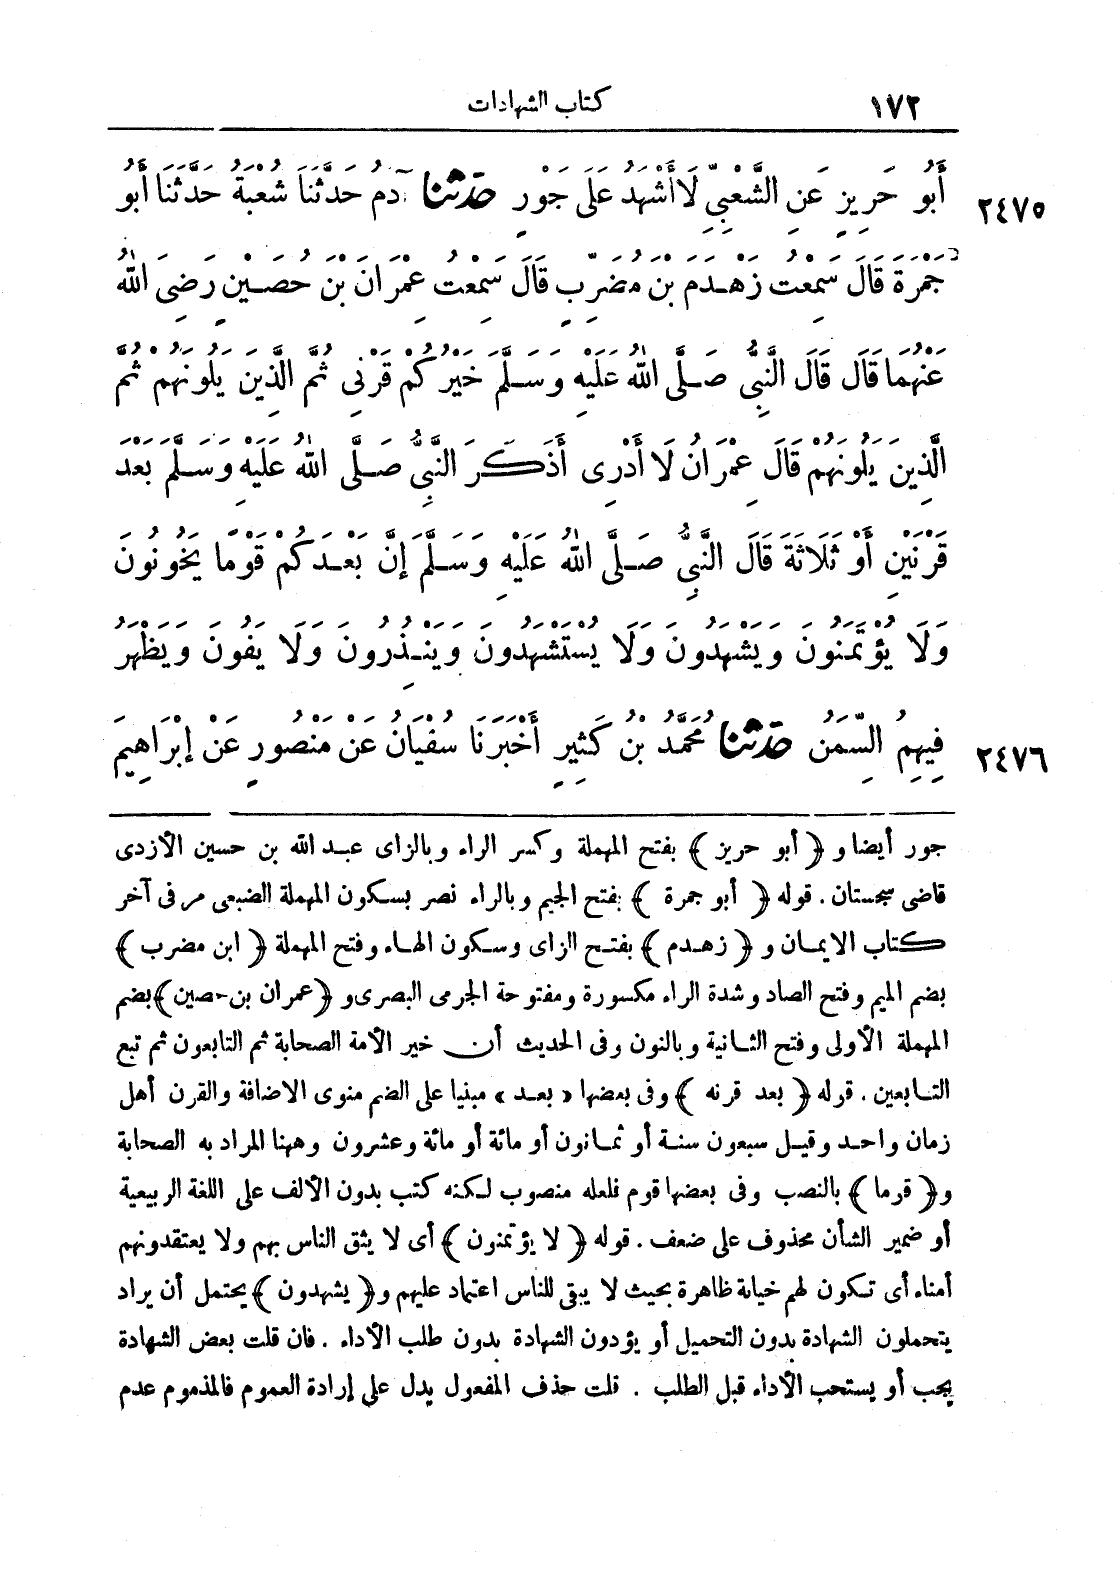 ١٧٢ كتاب الشهادات
أَبُو حَرِيزٍ عَنِ الشَّعْبِيِّ لَا أَشْهَدُ عَلَى جَوْرٍ حَدَّثَنَا آدَمُ حَدَّثَنَا شُعْبَةُ حَدَّثَنَا أَبُو ٢٤٧٥
جَمْرَةَ قَالَ سَمِعْتُ زَهْدَمَ بْنَ مُضَرِّبٍ قَالَ سَمِعْتُ عِمْرَانَ بْنَ حُصَيْنٍ رَضِىَ اللهُ
عَنْهُمَا قَالَ قَالَ النَّبِىُّ صَلَّى اللهُ عَلَيْهِ وَسَلَّمَ خَيْرُكُمْ قَرْنِى ثُمَّ الَّذِينَ يَلُونَهُمْ ثُمَّ
الَّذِينَ يَلُونَهُمْ قَالَ عِمْرَانُ لَا أَدْرِى أَذَكَرَ النَّبِىُّ صَلَّى اللهُ عَلَيْهِ وَسَلَّمَ بَعْدَ
قَرْنَيْنِ أَوْ ثَلَاثَةً قَالَ النَّبِىُّ صَلَّى اللهُ عَلَيْهِ وَسَلَّمَ إِنَّ بَعْدَكُمْ قَوْمًا يَخُونُونَ
وَلَا يُؤْتَمَنُونَ وَيَشْهَدُونَ وَلَا يُسْتَشْهَدُونَ وَيَنْذِرُونَ وَلَا يَفُونَ وَيَظْهَرُ
فِيهِمُ السِّمَنُ حَدَّثَنَا مُحَمَّدُ بْنُ كَثِيرٍ أَخْبَرَنَا سُفْيَانُ عَنْ مَنْصُورٍ عَنْ إِبْرَاهِيمَ ٢٤٧٦
جور أيضا و ﴿أبو حريز﴾ بفتح المهملة وكسر الراء وبالزاى عبد الله بن حسين الأزدى
قاضى سجستان . قوله ﴿أبو جمرة﴾ بفتح الجيم وبالراء نصر بسكون المهملة الضبعى مر فى آخر
كتاب الايمان و ﴿زهدم﴾ بفتح الزاى وسكون الهاء وفتح المهملة ﴿ابن مضرب﴾
بضم الميم وفتح الضاد وشدة الراء مكسورة ومفتوحة الجرمى البصرى و ﴿عمران بن حصين﴾ بضم
المهملة الأولى وفتح الثانية وبالنون وفى الحديث أن خير الأمة الصحابة ثم التابعون ثم تبع
التابعين . قوله ﴿بعد قرنه﴾ وفى بعضها «بعد» مبنيا على الضم منوى الاضافة والقرن أهل
زمان واحد وقيل سبعون سنة أو ثمانون أو مائة أو مائة وعشرون وههنا المراد به الصحابة
و ﴿قوما﴾ بالنصب وفى بعضها قوم فلعله منصوب لكنه كتب بدون الألف على اللغة الربيعية
أو ضمير الشأن محذوف على ضعف . قوله ﴿لا يؤتمنون﴾ أى لا يثق الناس بهم ولا يعتقدونهم
أمناء أى تكون لهم خيانة ظاهرة بحيث لا يبقى للناس اعتماد عليهم و ﴿يشهدون﴾ يحتمل أن يراد
يتحملون الشهادة بدون التحميل أو يؤدون الشهادة بدون طلب الأداء . فان قلت بعض الشهادة
يجب أو يستحب الأداء قبل الطلب . قلت حذف المفعول يدل على إرادة العموم فالمذموم عدم